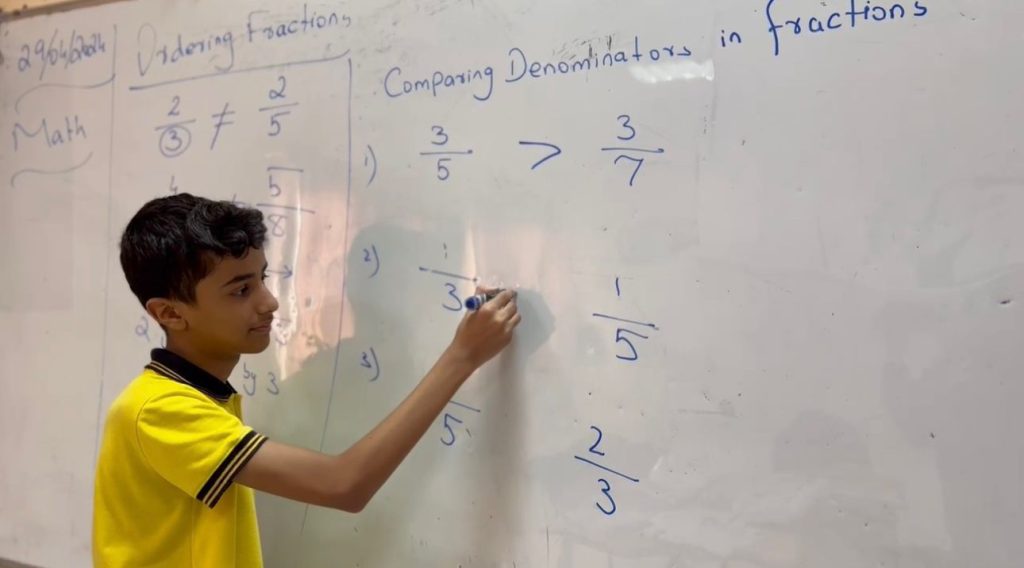 29/04/2024
Math
Ordering Fractions
2/3 ≠ 2/5
4
5/8
2
by 3
Comparing Denominators in fractions
1) 3/5 > 3/7
2) 1/3 1/5
3) /5 2/3